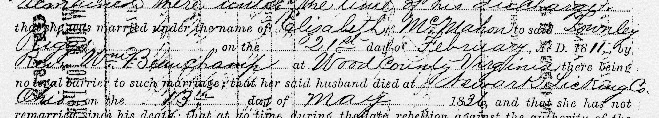 remained there until the time of his discharge;
that she was married under the name of Elizabeth McMahon to said Townley
Rigg on the 21st day of February, A. D. 1811, by
Rev. Wm. Beauchamp at Wood County Virginia there being
no legal barrier to such marriage; that her said husband died at Newark Licking Co.
Ohio on the 13th day of May 1826, and that she has not
remarried since his death; that at no time during the late rebellion against the authority of the